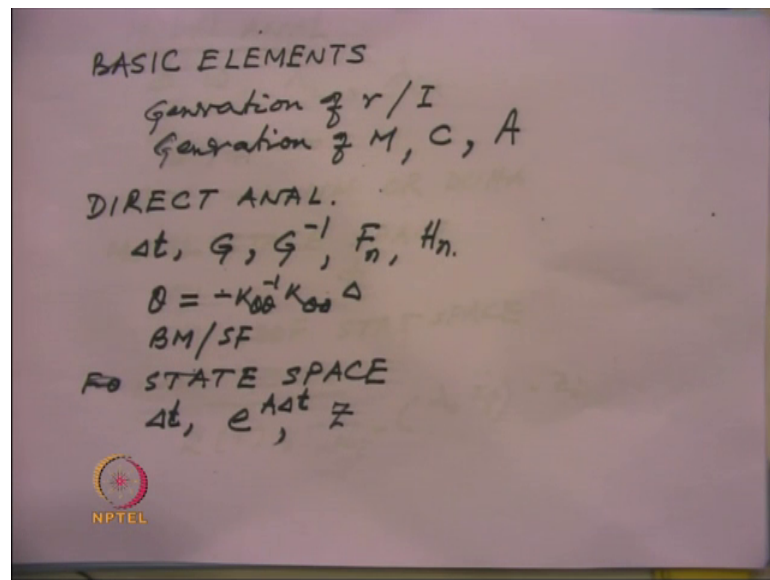 BASIC ELEMENTS
Generation of r/I
Generation of M, C, A
DIRECT ANAL.
Δt, G, G⁻¹, Fₙ, Hₙ.
θ = -K_θθ⁻¹ K_θΔ Δ
BM/SF
STATE SPACE
Δt, e^{AΔt}, Z
NPTEL